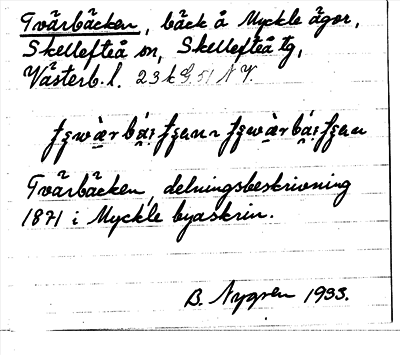 Tvärbäcken, bäck å Myckle ägor,
Skellefteå sn, Skellefteå tg,
Västerb. l. 23k
Tvärbäcken, delningsbeskrivning
1871 i Myckle byaskrin.
B. Nygren 1933.